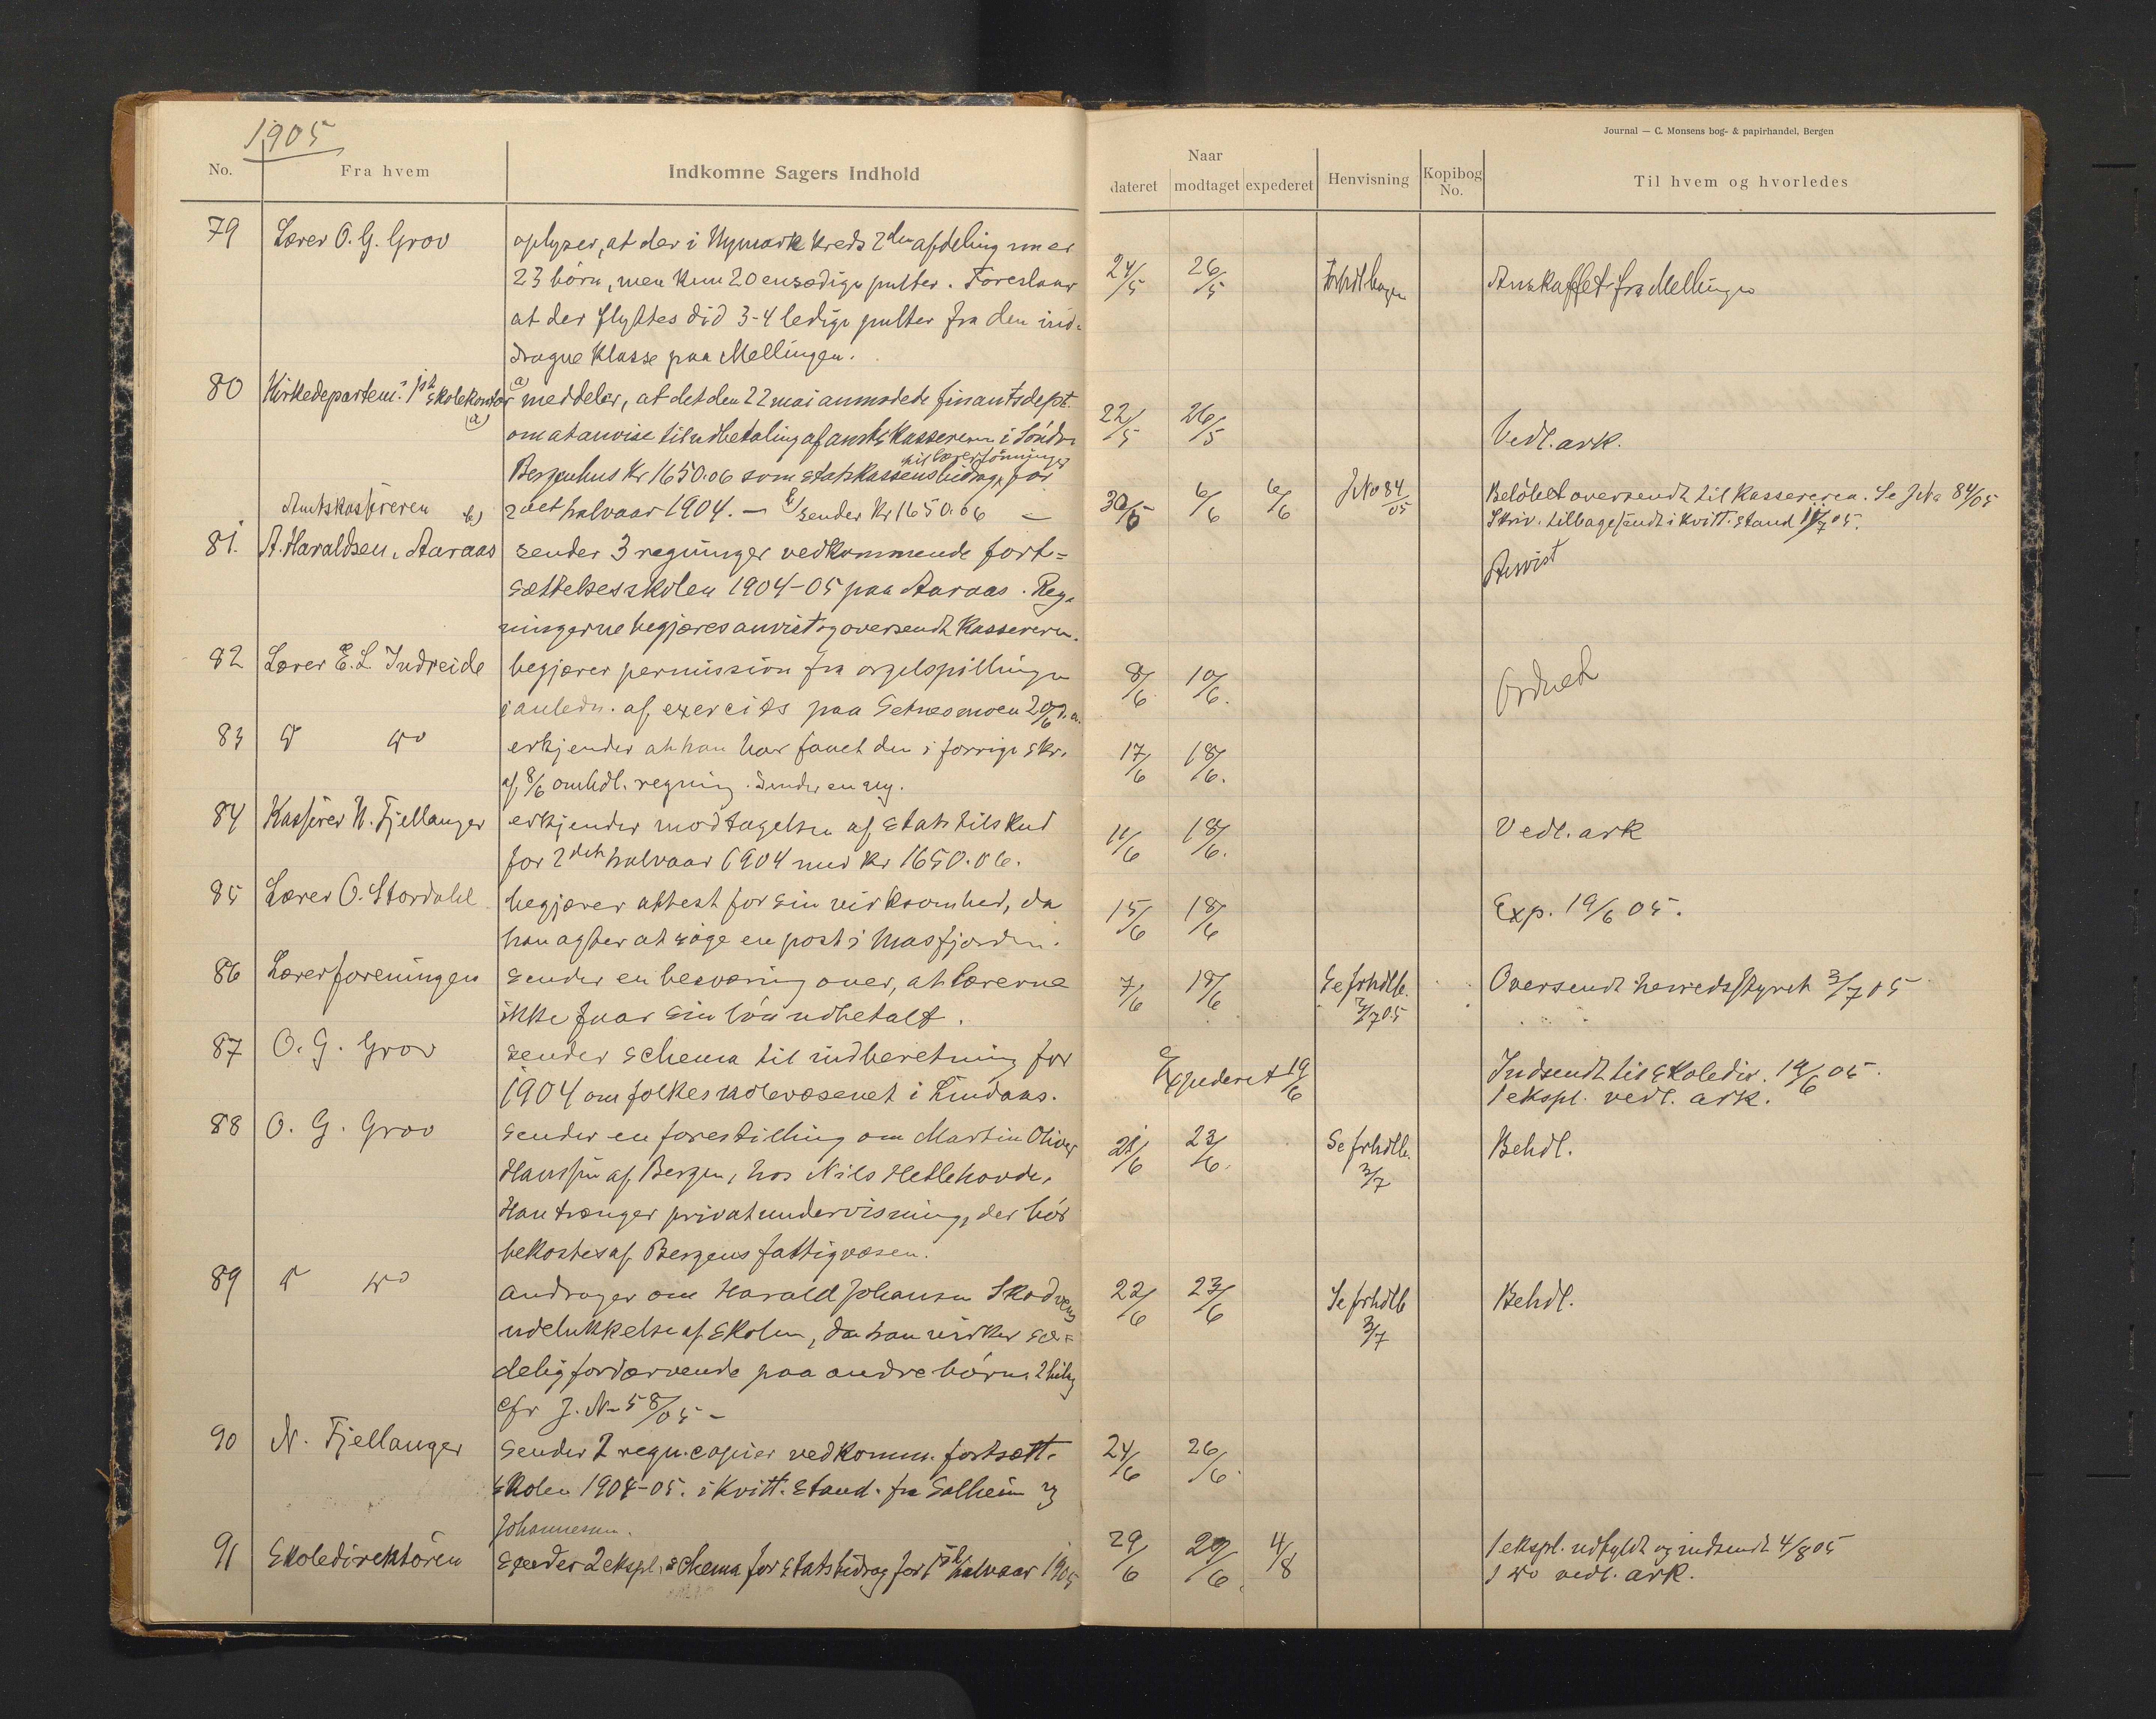 1905
Journal — C. Monsens bog- & papirhandel, Bergen
No. Fra hvem Indkomne Sagers Indhold Naar dateret modtaget expederet Henvisning Kopibog No. Til hvem og hvorledes
79 Lærer O. G. Grov oplyser, at der i Nymark kreds 2den afdeling nu er
23 børn, men kun 20 ensædige pulter. Foreslaar 24/5 26/5 Anskaffet fra Mellingen
at der flyttes did 3-4 ledige pulter fra den ind-
dragne klasse paa Mellingen.
80 Kirkedepartem. 1ste skolekontor a) a) meddeler, at det den 22 mai anmodede finantsdept. 22/5 26/5
om at anvise til udbetaling af amtskassereren i Søndre Vedl. ark.
til lærerlønninger
Bergenhus Kr 1650.06 som statskassens bidrag for
Amtskassereren b) 2det halvaar 1904. — b) sender Kr 1650.06 — 30/5 6/6 6/6 J No 84/05 Beløbet oversendt til kassereren. Se J No 84/05
Skriv. tilbagesendt i kvitt. stand
81. A. Haraldsen, Aaraas sender 3 regninger vedkommende fort= Anvist
sættelsesskolen 1904-05 paa Aaraas. Reg-
ningerne begjæres anvist og oversendt kassereren.
82 Lærer E. L. Indreide begjærer permission fra orgelspillingen 8/6 10/6. Ordnet
i anledn. af exercits paa Setnesmoen 20/6 d. a.
83 do erkjender at han har faaet den i forrige skr. 17/6 18/6.
af 8/6 omhdl. regning. Sender en ny.
84 Kasserer N. Fjellanger erkjender modtagelsen af Statstilskud 11/6 18/6. Vedl. ark
for 2det halvaar 1904 med Kr 1650.06.
85 Lærer O. Stordahl begjærer attest for sin virksomhed, da 15/6 18/6 Exp. 19/6 05.
han agter at søge en post i Masfjorden.
86 Lærerforeningen sender en besværing over, at lærerne 7/6 18/6 Se frhdlb. 3/7 05 Oversendt herredsstyret 3/7 05
ikke faar sin løn udbetalt.
87 O. G. Grov sender schema til indberetning for Expederet 19/6 Indsendt til skoledir. 19/6 05.
1904 om folkeskolevæsenet i Lindaas. 1 ekspl. vedl. ark.
88 O. G. Grov sender en forestilling om Martin Oliver 21/6 23/6. Se frhdlb. 3/7 Behdl.
Hanssen af Bergen, hos Nils Hetlehovde,
Han trænger privatundervisning, der bør
bekostes af Bergens fattigvæsen.
89 do andrager om Harald Johansen Skodvens 22/6 23/6 Se frhdlb 3/7 Behdl.
udelukkelse af skolen, da han virker sæ=
delig fordærvende paa andre børn. 2 bilag
cfr J. No 58/05 —
90 N. Fjellanger sender 2 regn. copier vedkomm. fortsætt. 24/6 26/6.
skolen 1904-05. i kvitt. stand. fra Solheim og
Johannesen.
91 Skoledirektøren sender 2 ekspl. schema for statsbidrag for 1ste halvaar 1905 29/6 29/6. 4/8 1 ekspl. udfyldt og indsendt 4/8 05
1 do vedl. ark.